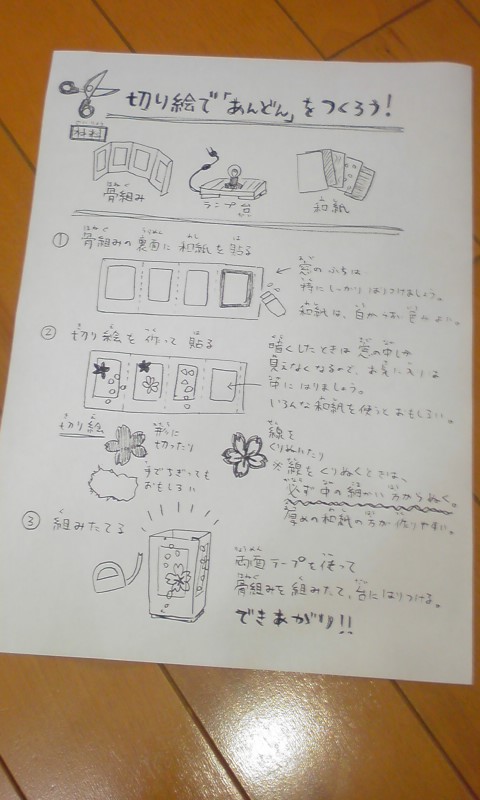 切り絵で「あんどん」をつくろう!
材料
骨組み
ランプ台
和紙
① 骨組みの裏面に和紙を貼る
窓のふちは
特にしっかりはりつけましょう。
和紙は、白かうすい色がよい。
② 切り絵を作って貼る
暗くしたときは窓の中しか
見えなくなるので、お気に入りは
中にはりましょう。
いろんな和紙を使うとおもしろい。
切り絵
形に
切ったり
手でちぎっても
おもしろい
線を
くりぬいたり
※線をくりぬくときは、
必ず中の細かい方からぬく。
厚めの和紙の方が作りやすい。
③ 組みたてる
両面テープを使って
骨組みを組みたて、台にはりつける。
できあがり!!